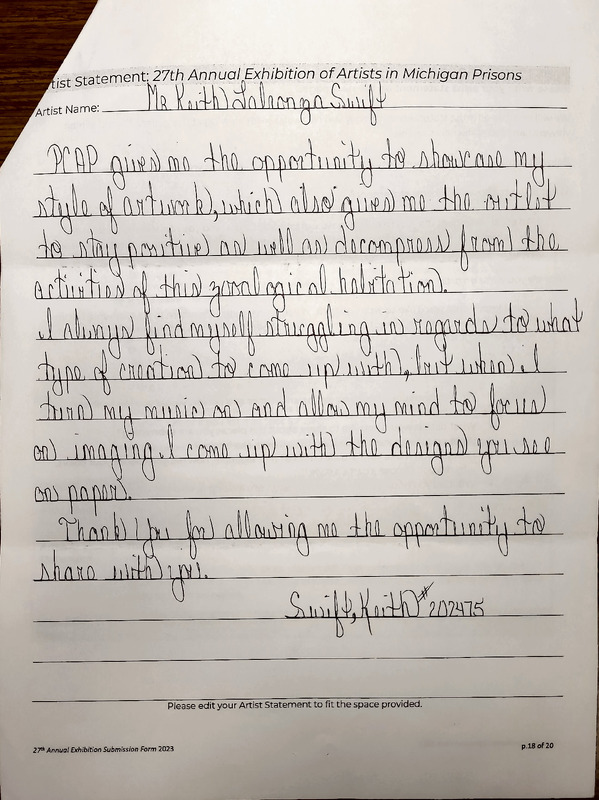 tist Statement: 27th Annual Exhibition of Artists in Michigan Prisons
Artist Name: Mr Keith Lalronga Swift
PCAP gives me the opportunity to showcase my
style of artwork, which also gives me the outlet
to stay positive as well as decompress from the
activities of this zoological habitation.
I always find myself struggling in regards to what
type of creation to come up with, but when I
turn my music on and allow my mind to focus
on imaging I come up with the designs you see
on paper.
Thank You for allowing me the opportunity to
share with you.
Swift, Keith #202475
Please edit your Artist Statement to fit the space provided.
27th Annual Exhibition Submission Form 2023
p.18 of 20